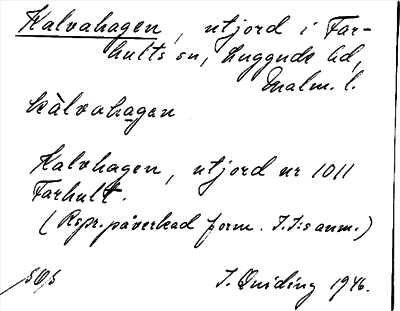 Kalvahagen, utjord i Far-
hults sn, Luggude hd,
Malm. l.
kàlvahagen
Kalvhagen, utjord nr 1011
Farhult.
(Rspr. påverkad form. I. I:s anm.)
I. Quiding 1946.